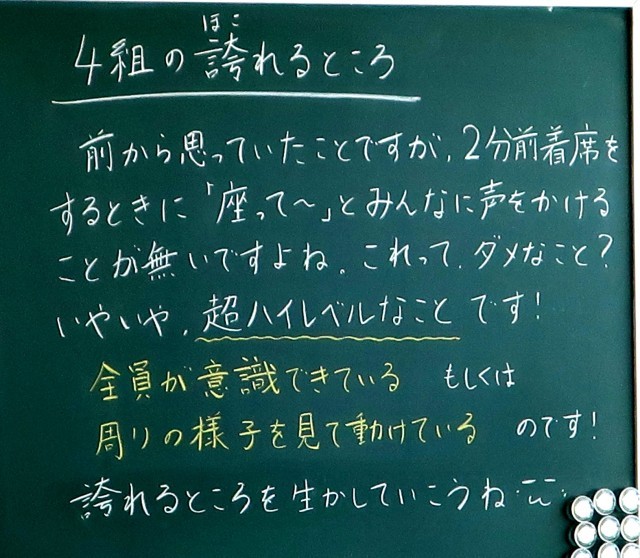 ほこ
4組の誇れるところ
前から思っていたことですが、2分前着席を
するときに「座って〜」とみんなに声をかける
ことが無いですよね。これって、ダメなこと?
いやいや、超ハイレベルなことです!
全員が意識できている もしくは
周りの様子を見て動けている のです!
誇れるところを生かしていこうね